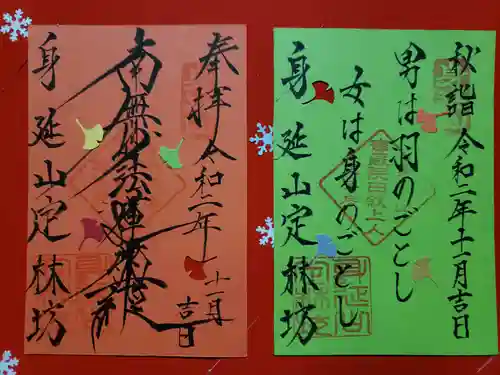 秋詣 令和二年十一月吉日
男は羽のごとし
女は身のごとし
身延山定林坊
奉拝 令和二年十一月吉日
南無妙法蓮華経
身延山定林坊